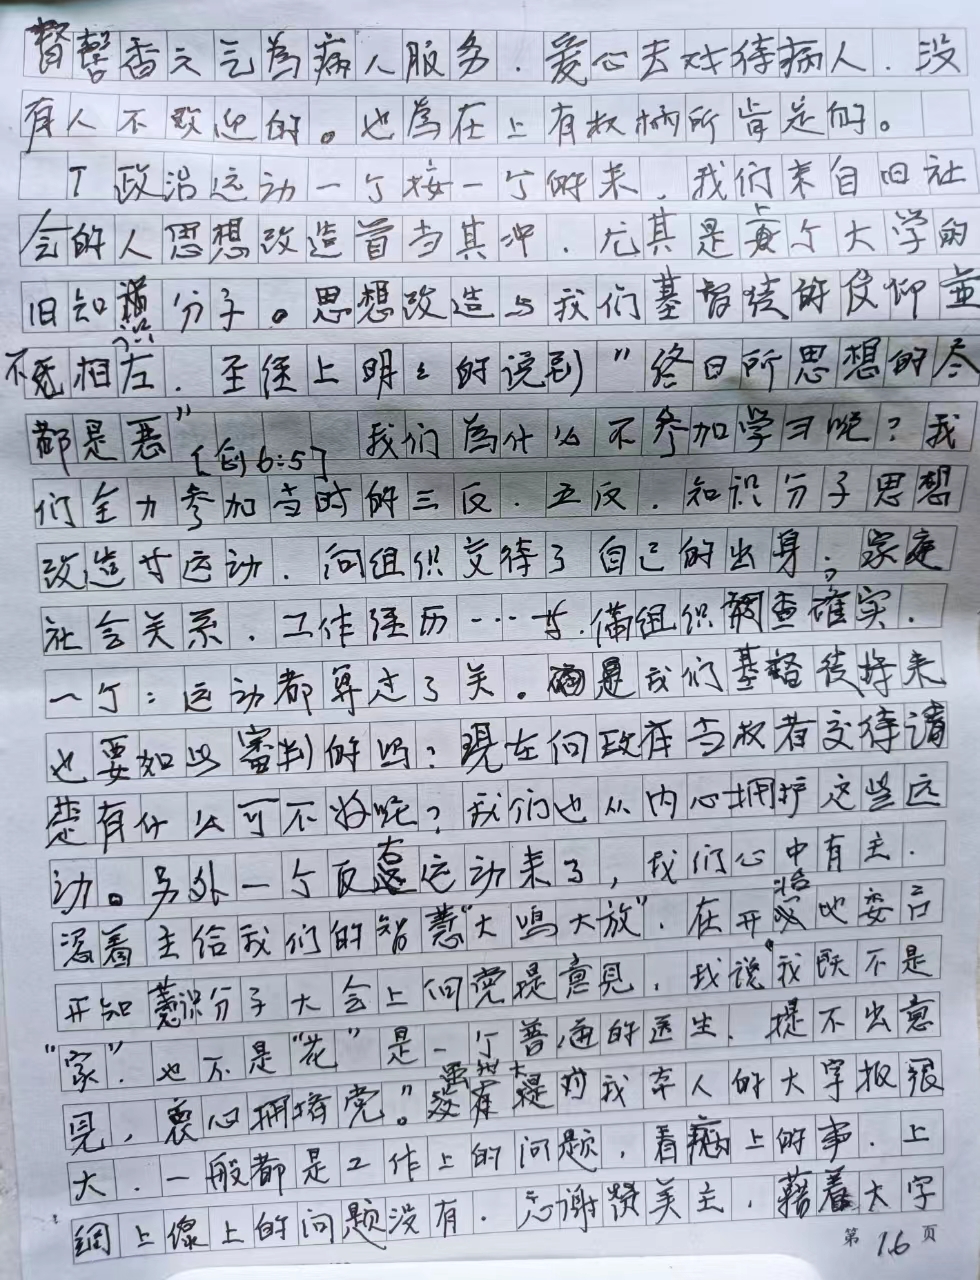 督馨香之气為病人服务．爱心去对待病人．没
有人不欢迎的。也為在上有权柄所肯定的。
丁 政治运动一个接一个的来．我们来自旧社
会的人思想改造首当其冲．尤其是上个大学的
旧知识分子。思想改造与我们基督徒的信仰並
不相左．圣经上明々的说到"终日所思想的尽
都是恶"[创6:5] 我们為什么不参加学习呢?我
们全力参加当时的三反．五反．知识分子思想
改造廿运动．向组织交待了自己的出身，家庭
社会关系．工作经历……廿．儘组织調查確实．
一个々运动都算过了关。我们基督徒将来
也要如此審判的吗?現在向政府当权者交待清
楚有什么可不好呢?我们也从内心拥护这些运
动。另外一个反右运动来了，我们心中有主．
凭着主给我们的智慧"大鳴大放"．在开治地委召
开知识分子大会上向党提意見．我说"我既不是
"家"．也不是"花"是一个普通的医生．提不出意
見，衷心拥護党。"对我本人的大字报很
大．一般都是工作上的问题，看病上的事．上
綱上缐上的问题没有．感谢赞美主，藉着大字
第 16 页